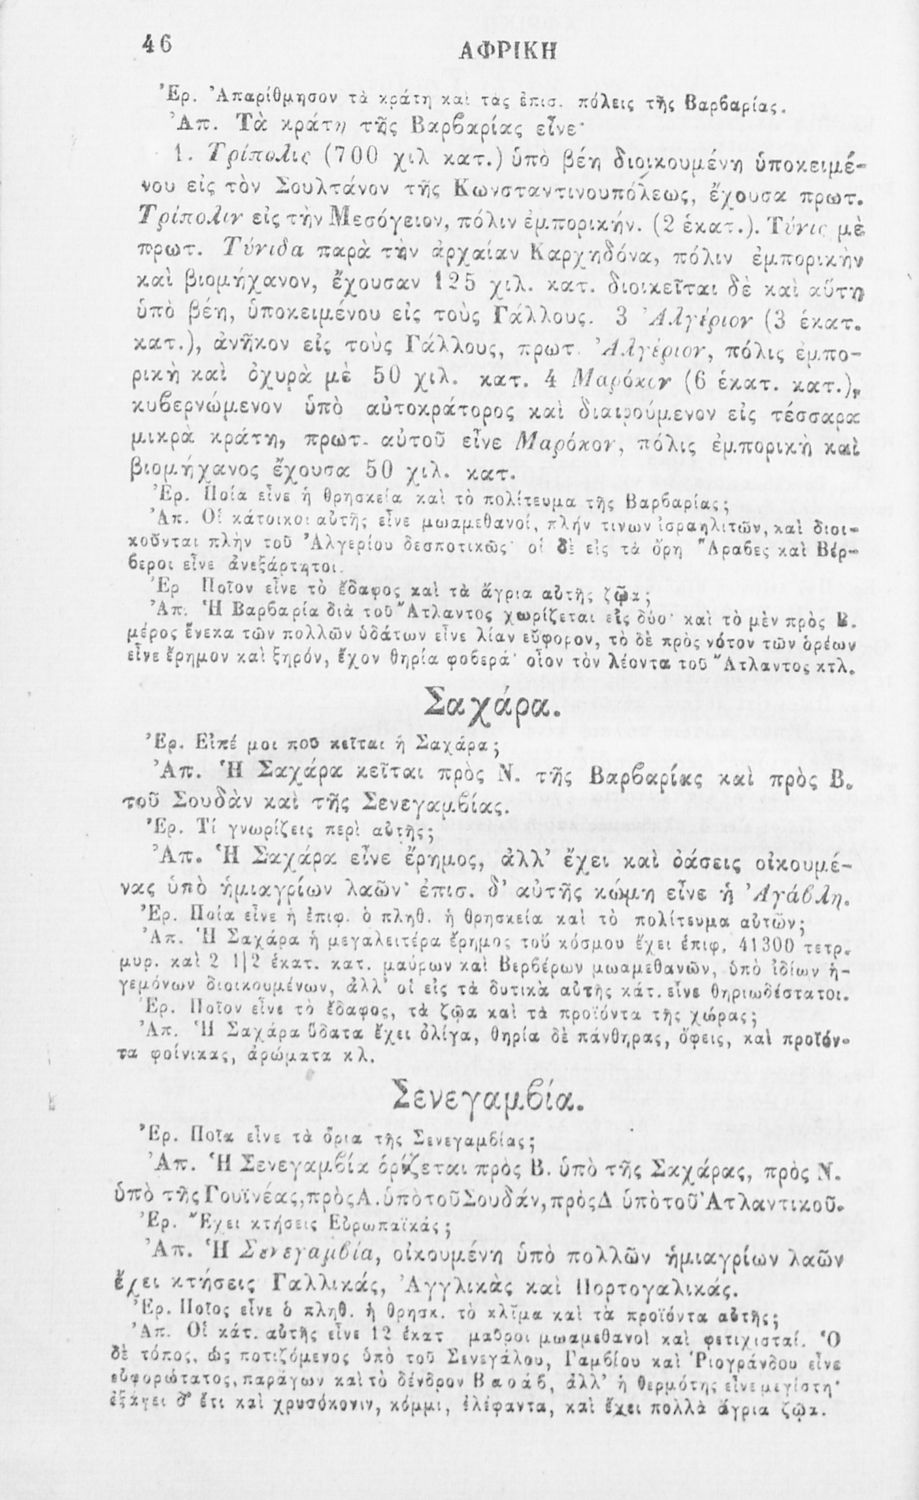 46
ΑΦΡΙΚΗ
Ἐρ. Ἀπαρίθμησον τὰ κράτη καὶ τὰς ἐπισ. πόλεις τῆς Βαρβαρίας.
Ἀπ. Τὰ κράτη τῆς Βαρβαρίας εἶνε·
1. Τρίπολις (700 χιλ κατ.) ὑπὸ βέη διοικουμένη ὑποκειμέ-
νου εἰς τὸν Σουλτάνον τῆς Κωνσταντινουπόλεως, ἔχουσα πρωτ.
Τρίπολιν εἰς τὴν Μεσόγειον, πόλιν ἐμπορικήν. (2 ἑκατ.). Τύνις μὲ
πρωτ. Τύνιδα παρὰ τὴν ἀρχαίαν Καρχηδόνα, πόλιν ἐμπορικὴν
καὶ βιομήχανον, ἔχουσαν 125 χιλ. κατ. διοικεῖται δὲ καὶ αὕτη
ὑπὸ βέη, ὑποκειμένου εἰς τοὺς Γάλλους. 3 Ἀλγέριον (3 ἑκατ.
κατ.), ἀνῆκον εἰς τοὺς Γάλλους, πρωτ. Ἀλγέριον, πόλις ἐμπο-
ρικὴ καὶ ὀχυρὰ μὲ 50 χιλ. κατ. 4 Μαρόκον (6 ἑκατ. κατ.),
κυβερνώμενον ὑπὸ αὐτοκράτορος καὶ διαιρούμενον εἰς τέσσαρα
μικρὰ κράτη, πρωτ. αὐτοῦ εἶνε Μαρόκον, πόλις ἐμπορικὴ καὶ
βιομήχανος ἔχουσα 50 χιλ. κατ.
Ἐρ. Ποία εἶνε ἡ θρησκεία καὶ τὸ πολίτευμα τῆς Βαρβαρίας;
Ἀπ. Οἱ κάτοικοι αὐτῆς εἶνε μωαμεθανοί, πλήν τινων ἰσραηλιτῶν, καὶ διοι-
κοῦνται πλὴν τοῦ Ἀλγερίου δεσποτικῶς· οἱ δὲ εἰς τὰ ὄρη Ἄραβες καὶ Βέρ-
βεροι εἶνε ἀνεξάρτητοι.
Ἐρ Ποῖον εἶνε τὸ ἔδαφος καὶ τὰ ἄγρια αὐτῆς ζῷα;
Ἀπ. Ἡ Βαρβαρία διὰ τοῦ Ἄτλαντος χωρίζεται εἰς δύο· καὶ τὸ μὲν πρὸς Β.
μέρος ἕνεκα τῶν πολλῶν ὑδάτων εἶνε λίαν εὔφορον, τὸ δὲ πρὸς νότον τῶν ὀρέων
εἶνε ἔρημον καὶ ξηρόν, ἔχον θηρία φοβερά· οἷον τὸν λέοντα τοῦ Ἄτλαντος κτλ.
Σαχάρα.
Ἐρ. Εἰπέ μοι ποῦ κεῖται ἡ Σαχάρα;
Ἀπ. Ἡ Σαχάρα κεῖται πρὸς Ν. τῆς Βαρβαρίας καὶ πρὸς Β.
τοῦ Σουδὰν καὶ τῆς Σενεγαμβίας.
Ἐρ. Τί γνωρίζεις περὶ αὐτῆς;
Ἀπ. Ἡ Σαχάρα εἶνε ἔρημος, ἀλλ' ἔχει καὶ ὀάσεις οἰκουμέ-
νας ὑπὸ ἡμιαγρίων λαῶν· ἐπισ. δ' αὐτῆς κώμη εἶνε ἡ Ἀγάβλη.
Ἐρ. Ποία εἶνε ἡ ἐπιφ. ὁ πληθ. ἡ θρησκεία καὶ τὸ πολίτευμα αὐτῶν;
Ἀπ. Ἡ Σαχάρα ἡ μεγαλειτέρα ἔρημος τοῦ κόσμου ἔχει ἐπιφ. 41300 τετρ.
μυρ. καὶ 2 1|2 ἑκατ. κατ. μαύρων καὶ Βερβέρων μωαμεθανῶν, ὑπὸ ἰδίων ἡ-
γεμόνων διοικουμένων, ἀλλ' οἱ εἰς τὰ δυτικὰ αὐτῆς κάτ. εἶνε θηριωδέστατοι.
Ἐρ. Ποῖον εἶνε τὸ ἔδαφος, τὰ ζῷα καὶ τὰ προϊόντα τῆς χώρας;
Ἀπ. Ἡ Σαχάρα ὕδατα ἔχει ὀλίγα, θηρία δὲ πάνθηρας, ὄφεις, καὶ προϊόν-
τα φοίνικας, ἀρώματα κ λ.
Σενεγαμβία.
Ἐρ. Ποῖα εἶνε τὰ ὅρια τῆς Σενεγαμβίας;
Ἀπ. Ἡ Σενεγαμβία ὁρίζεται πρὸς Β. ὑπὸ τῆς Σαχάρας, πρὸς Ν.
ὑπὸ τῆς Γουϊνέας, πρὸς Α. ὑπὸ τοῦ Σουδάν, πρὸς Δ ὑπὸ τοῦ Ἀτλαντικοῦ.
Ἐρ. Ἔχει κτήσεις Εὐρωπαϊκάς;
Ἀπ. Ἡ Σενεγαμβία, οἰκουμένη ὑπὸ πολλῶν ἡμιαγρίων λαῶν
ἔχει κτήσεις Γαλλικάς, Ἀγγλικὰς καὶ Πορτογαλικάς.
Ἐρ. Ποῖος εἶνε ὁ πληθ. ἡ θρησκ. τὸ κλῖμα καὶ τὰ προϊόντα αὐτῆς;
Ἀπ. Οἱ κάτ. αὐτῆς εἶνε 12 ἑκατ μαῦροι μωαμεθανοὶ καὶ φετιχισταί. Ὁ
δὲ τόπος, ὡς ποτιζόμενος ὑπὸ τοῦ Σενεγάλου, Γαμβίου καὶ Ῥιογράνδου εἶνε
εὐφορώτατος, παράγων καὶ τὸ δένδρον Βαοάβ, ἀλλ' ἡ θερμότης εἶνε μεγίστη·
ἐξάγει δ' ἔτι καὶ χρυσόκονιν, κόμμι, ἐλέφαντα, καὶ ἔχει πολλὰ ἄγρια ζῷα.